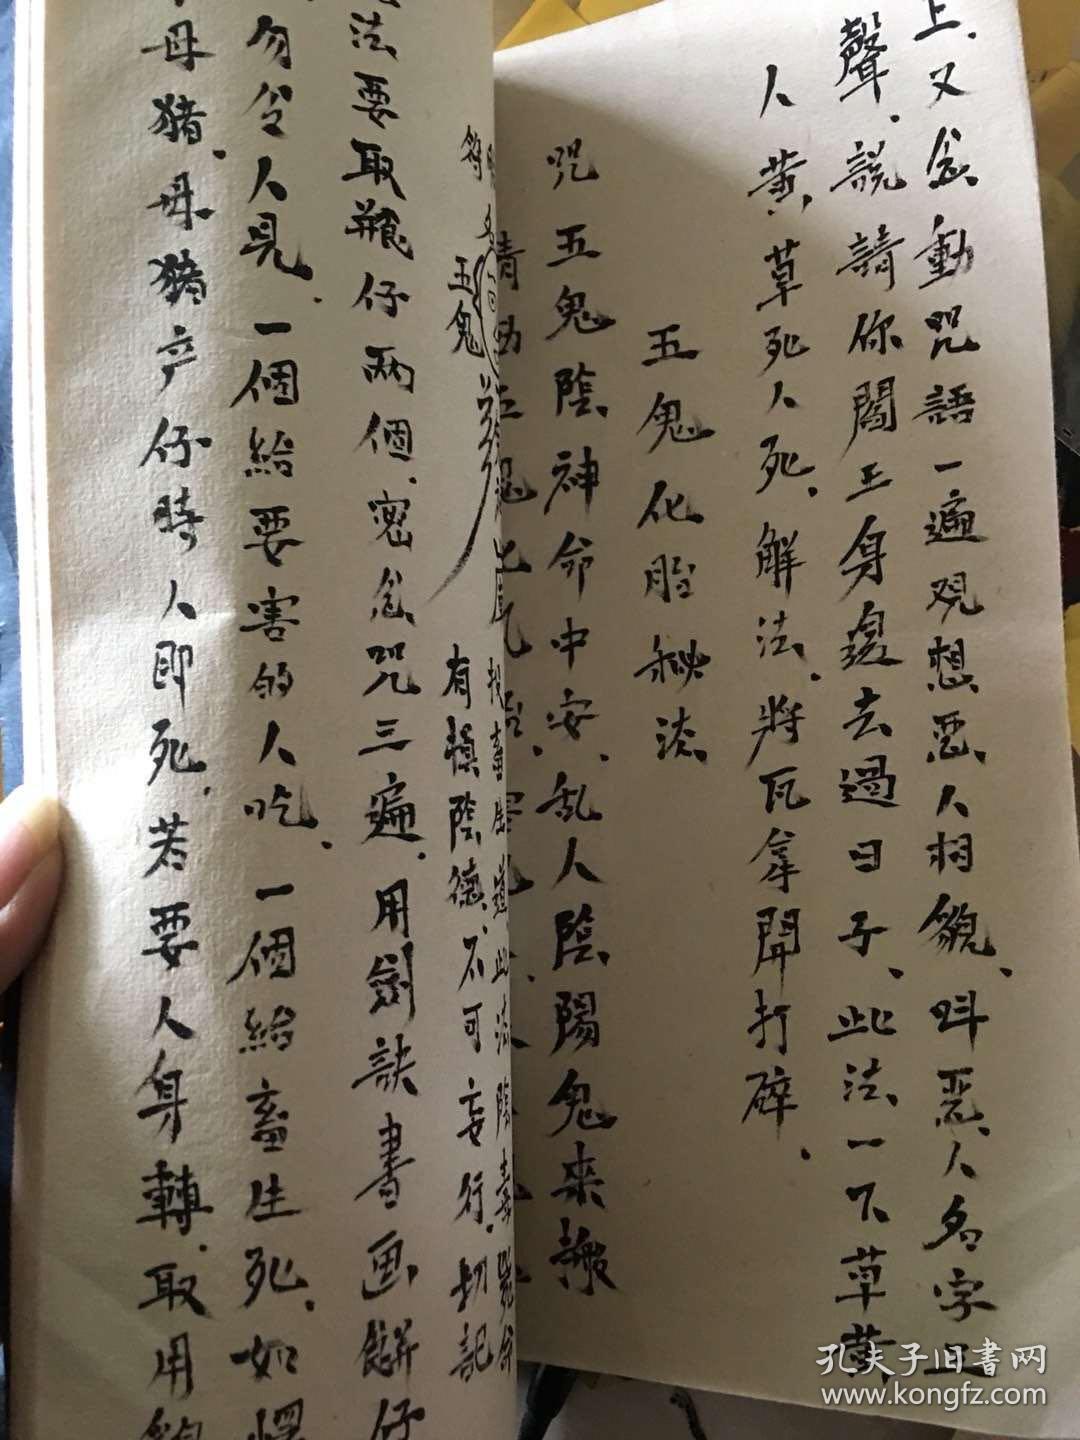 上、又念動咒語一遍观想惡人相貌、叫惡人名字
聲、説請你閻王身邊去過日子、此法一下草黄
人黄草死人死、解法、將瓦拿開打碎、
五鬼化胎秘法
咒五鬼陰神命中安、乱人陰陽鬼来搬
投畜生道此法陰毒
有損陰德、不可妄行、切記
符
五鬼
法要取瓶仔两個、密念咒三遍、用劍訣書画餅仔
勿令人見、一個給要害的人吃、一個給畜生死、如
母猪、母猪产仔時人即死、若要人身轉、取用
孔夫子旧書网
www.kongfz.com